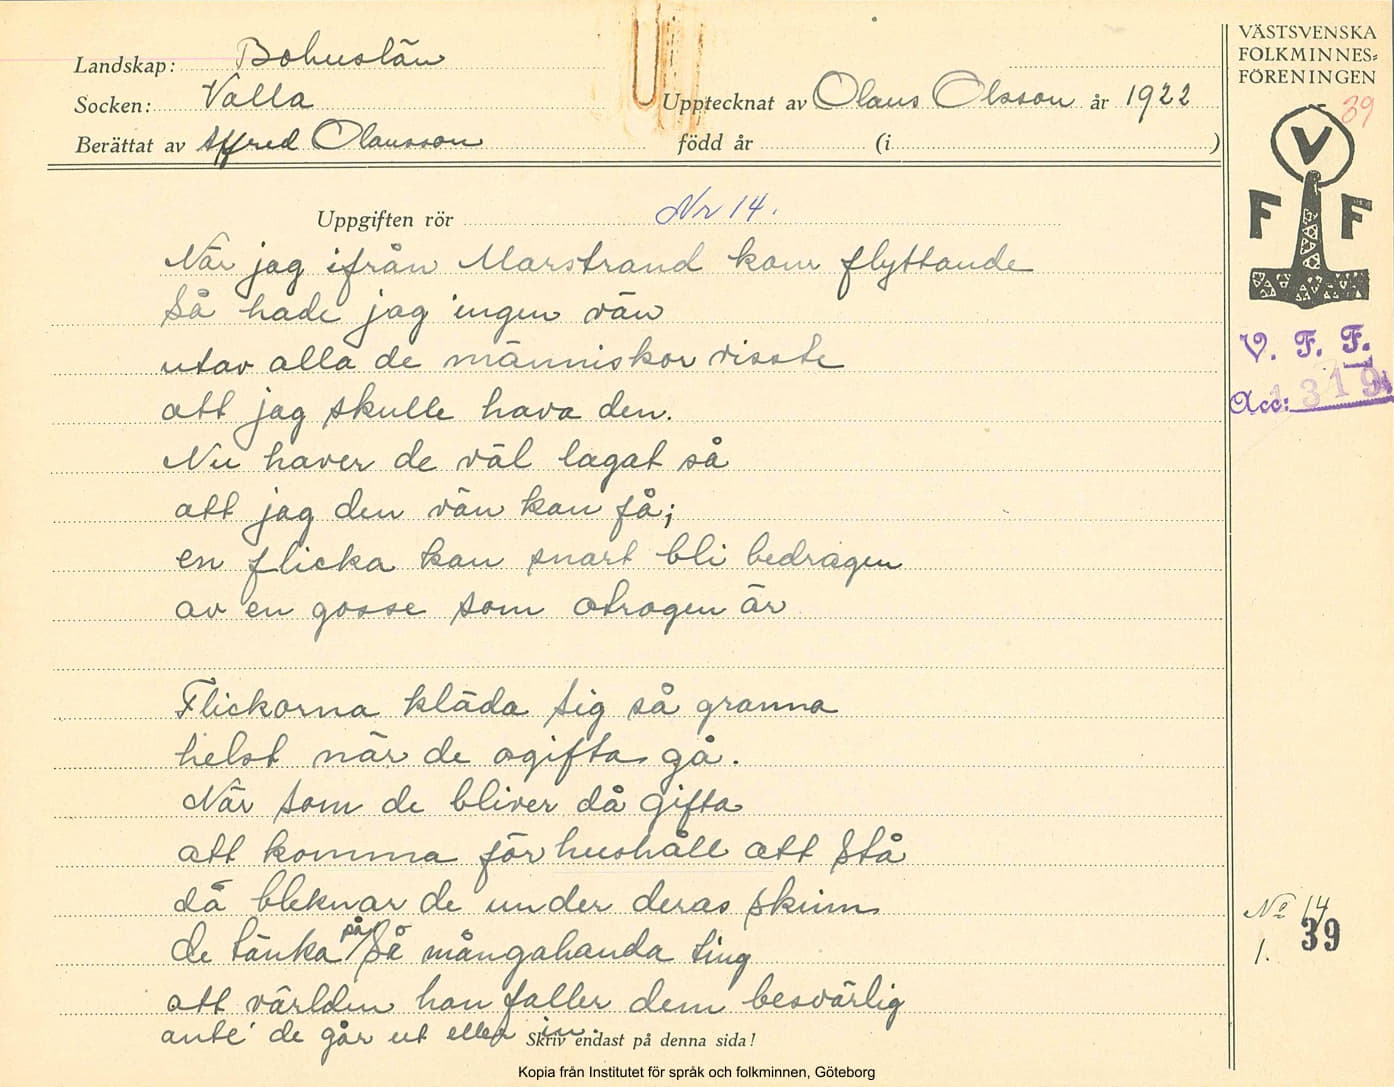 Landskap: Bohuslän
Socken: Valla
Berättat av Alfred Olausson
Upptecknat av Olaus Olsson år 1922
född år (i )
VÄSTSVENSKA
FOLKMINNES=
FÖRENINGEN
39
V
F F
V. F. F.
Acc: 1319
Uppgiften rör Nr 14.
När jag ifrån Marstrand kom flyttande
Så hade jag ingen vän
utav alla de människor visste
att jag skulle hava den.
Nu haver de väl lagat så
att jag den vän kan få;
en flicka kan snart bli bedragen
av en gosse som otrogen är
Flickorna kläda sig så granna
helst när de ogifta gå.
När som de bliver då gifta
att komma för hushåll att stå
då bleknar de under deras skinn
de tänka på så mångahanda ting
att världen han faller dem besvärlig
ante' de går ut eller in.
No 14
1. 39
Skriv endast på denna sida!
Kopia från Institutet för språk och folkminnen, Göteborg